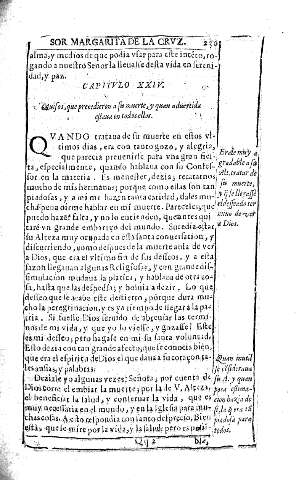 SOR MARGARITA DE LA CRVZ.
alma, y medios de que podia vsar para este intento, ro-
gando a nuestro Señor la lleuasse desta vida en sereni-
dad, y paz.
CAPITVLO XXIV.
Auisos, que precedieron a su muerte, y quan aduertida
estaua en todos ellos.
QVANDO trataua de su muerte en estos vl-
timos dias, era con tanto gozo, y alegria,
que parecia preuenirse para vna gran fies-
ta, especialmente, quando hablaua con su Confes-
sor en la materia. Es menester, dezia, recatarnos
mucho de mis hermanas; porque como ellas son tan
piadosas, y a mi me hazen tanta caridad, dales mu-
cha pena oirme hablar en mi muerte. Pareceles, que
puedo hazer falta, y no lo entienden, que antes qui-
tarè vn grande embaraço del mundo. Sucedia estar
su Alteza muy ocupada en esta santa conuersacion, y
discurriendo, como despues de la muerte auia de ver
a Dios, que era el vltimo fin de sus desseos, y a esta
sazon llegauan algunas Religiosas, y con grande dis-
simulacion mudaua la platica, y hablaua de otra co-
sa, hasta que las despedia; y boluia a dezir. Lo que
desseo que se acabe este destierro, porque dura mu-
cho la peregrinacion, y es ya tiempo de llegar a la pa-
tria. Si fuesse Dios seruido de abreuiar los termi-
nos de mi vida, y que yo lo viesse, y gozasse! Este
es mi desseo, pero hagase en mi su santa voluntad.
Esto dezia con tan grande afecto, que se conocia bien,
que era el espiritu de Dios el que daua a su coraçon
ansias, y palabras.
Deziale yo algunas vezes: Señora, por cuenta de
Dios corre el embiar la muerte; por la de V. Alteza,
el beneficiar la salud, y conseruar la vida, que es
muy necessaria en el mundo, y en la Iglesia para mu-
chas cosas. A esto respondia con santo desprecio, Bien
està, que se mire por la vida, y la salud; pero es possi-
Qq 2
ble,
Erale muy a-
gradable a su
Al. tratar de
su muerte,
desseado ter
a Dios.
Quan